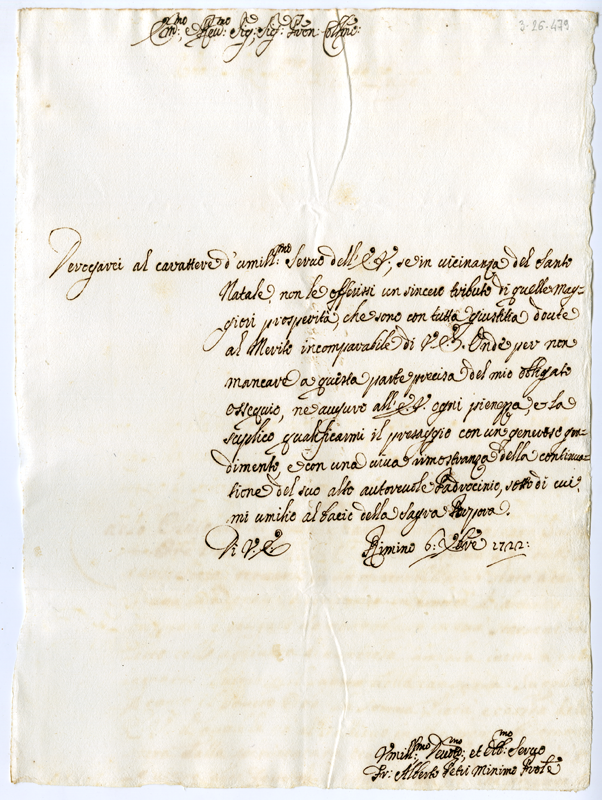 3-26-479
Em:mo e Rev:mo Sig:re Sig:re Pron: Col:mo
Derogarei al carattere d'umill:mo Servo dell'E. V., se in vicinanza del Santo
Natale, non le offerissi un sincero tributo di quelle mag-
giori prosperità, che sono con tutta giustitia dovute
al Merito incomparabile di V. E. Onde per non
mancare a questa parte precisa del mio obligato
ossequio, ne auguro all'E. V. ogni pienezza, e la
suplico qualificarmi il presaggio con un generoso gra-
dimento, e con una viva rimostranza della continua-
tione del suo alto autorevole Padrocinio, sotto di cui,
mi umilio al bacio della Sagra Porpora.
Di V. E.
Rimino 6: Xbre 1722:
Umill:mo Devot:mo et Obb:mo Servo
Fr: Alberto Petri Minimo Prole